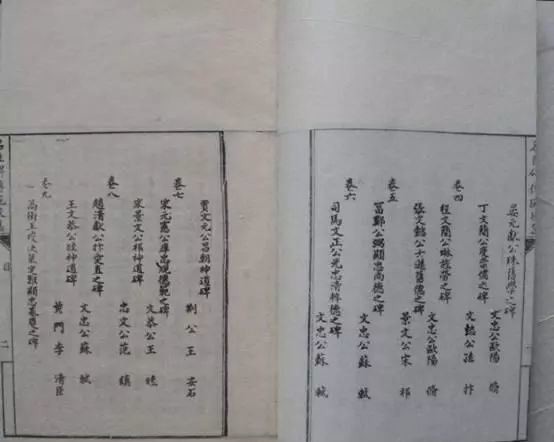 晏元獻公殊舊學之碑
文忠公歐陽 脩
卷四
丁文簡公度崇儒之碑
文懿公孫 抃
程文簡公琳旌勞之碑
文忠公歐陽 脩
卷五
張文懿公士遜舊德之碑
景文公宋 祁
富鄭公弼顯忠尚德之碑
文忠公蘇 軾
卷六
司馬文正公光忠清粹德之碑
文忠公蘇 軾
二
賈文元公昌朝神道碑
荆公王 安石
卷七
宋元憲公庠忠規德範之碑
文恭公王 珪
宋景文公祁神道碑
忠文公范 鎮
卷八
趙清獻公抃愛直之碑
文忠公蘇 軾
王文恭公珪神道碑
黃門李 清臣
卷九
高衛王瓊決策定難顯忠基慶之碑
目
二